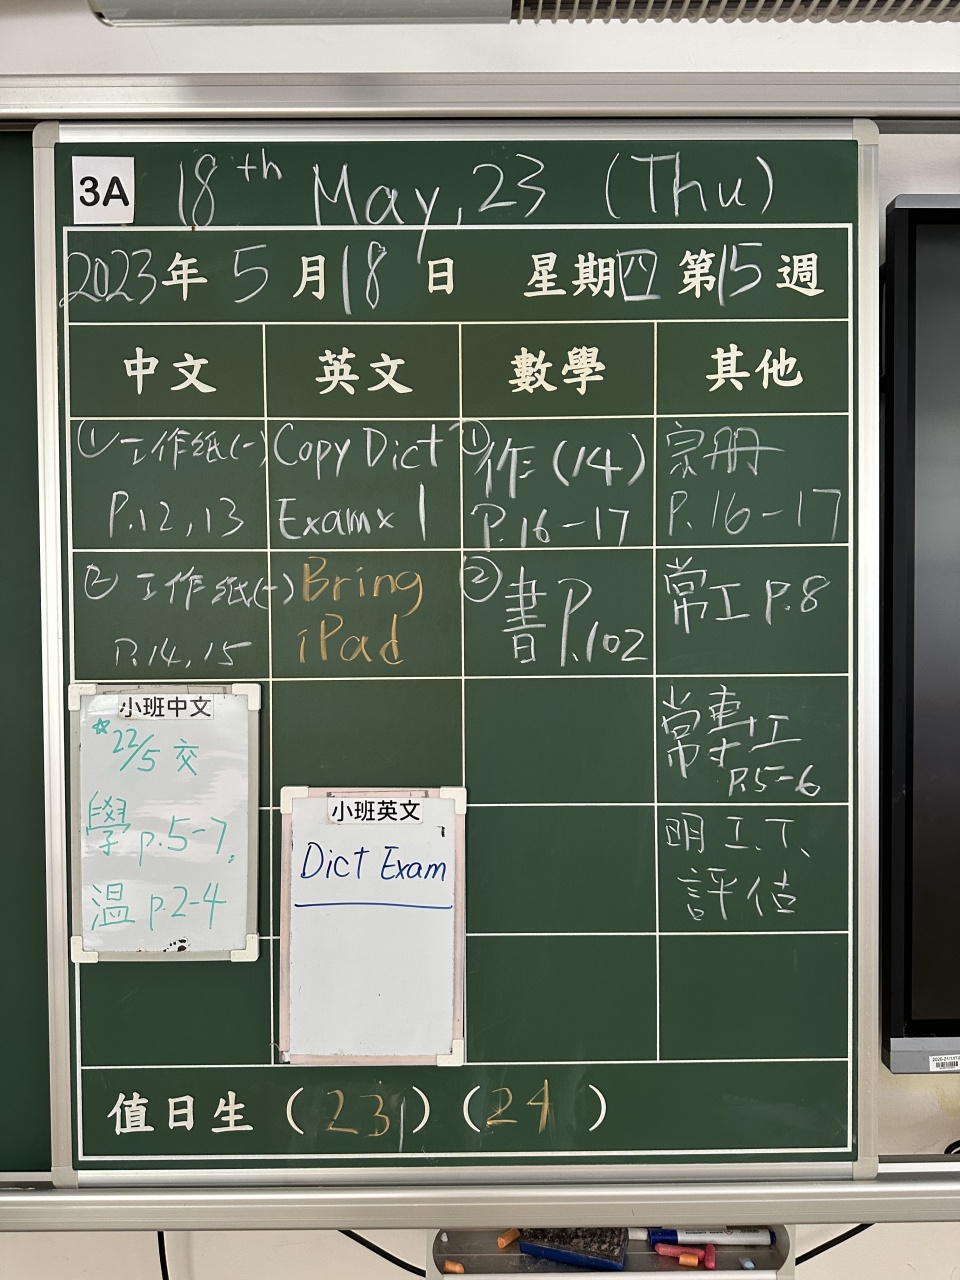 3A
18th May, 23 (Thu)
2023年 5月18日 星期四 第15週
中文
英文
數學
其他
① 工作紙(一)
P.12,13
② 工作紙(一)
P.14,15
Copy Dict
Exam x 1
Bring
iPad
① 作(14)
P.16-17
② 書P.102
宗冊
P.16-17
常工 P.8
常專工
P.5-6
明 I.T、
評估
小班中文
*22/5 交
學 p.5-7,
溫 p.2-4
小班英文
Dict Exam
值日生 (23) (24)